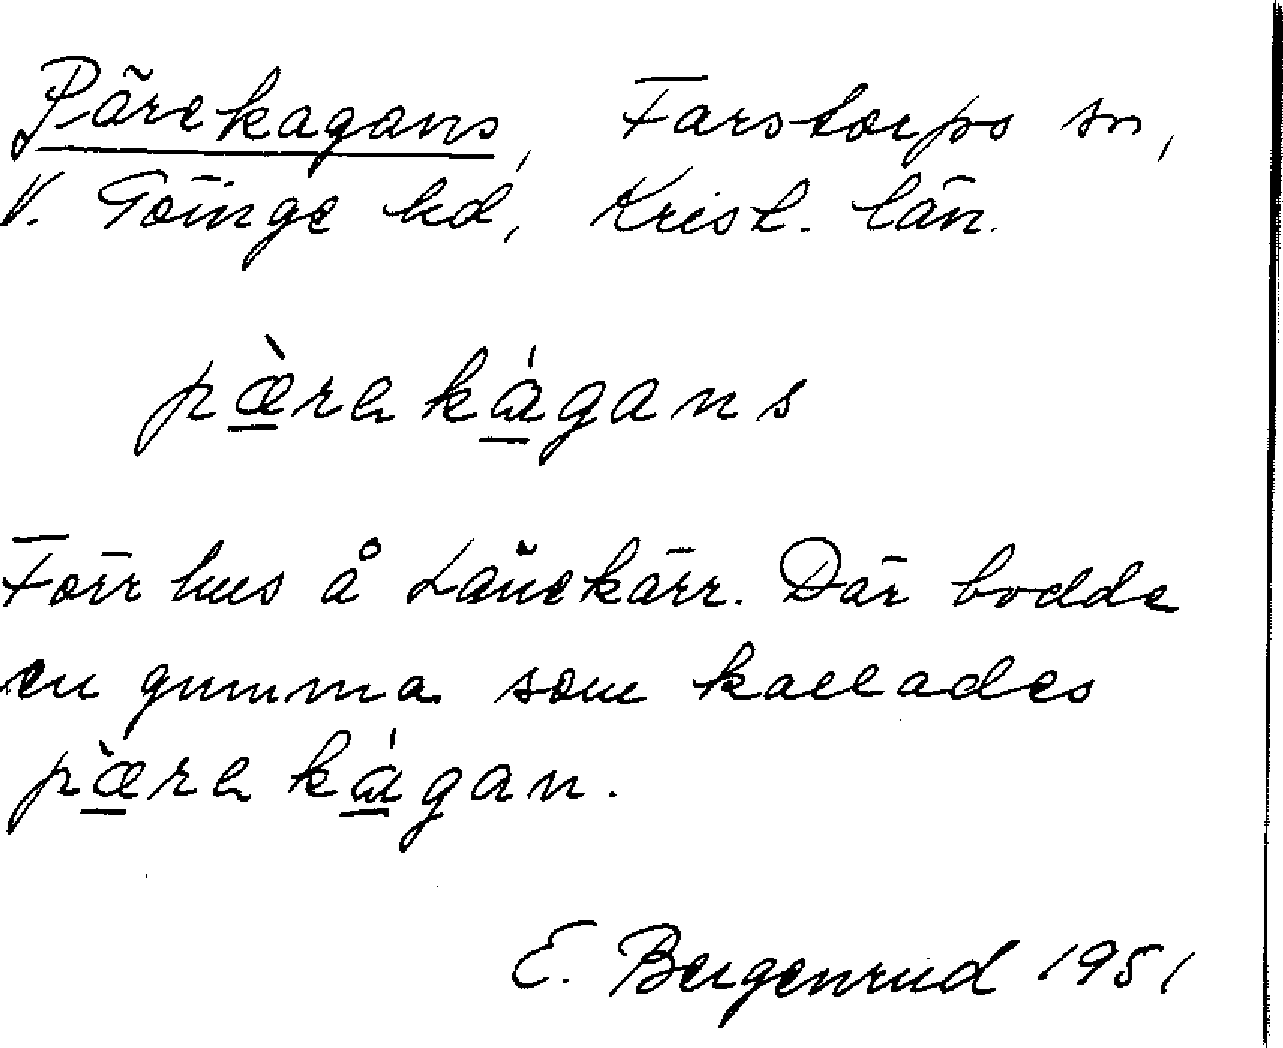 Pärekagans, Farstorps sn,
V. Göinge hd, Krist. län.
pæ̀rɐ kɑ́gans
Förr hus å Lånekärr. Där bodde
en gumma som kallades
pæ̀rɐ kɑ́gan.
E. Bergenrud 1951